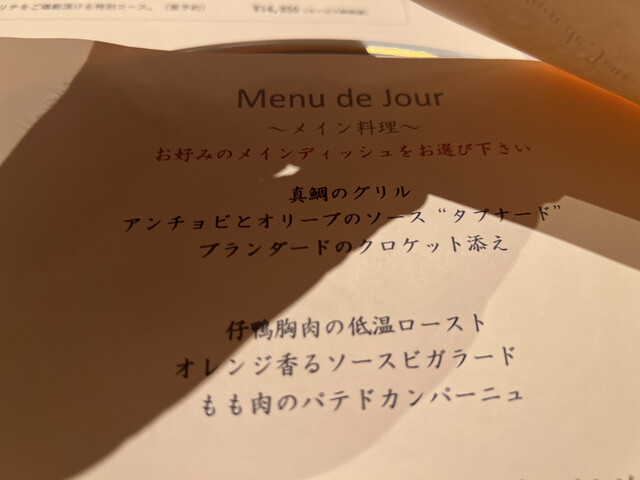 をご堪能頂ける特別コース。(要予約)
Menu de Jour
～メイン料理～
お好みのメインディッシュをお選び下さい
真鯛のグリル
アンチョビとオリーブのソース“タプナード”
ブランダードのクロケット添え
仔鴨胸肉の低温ロースト
オレンジ香るソースビガラード
もも肉のパテドカンパーニュ